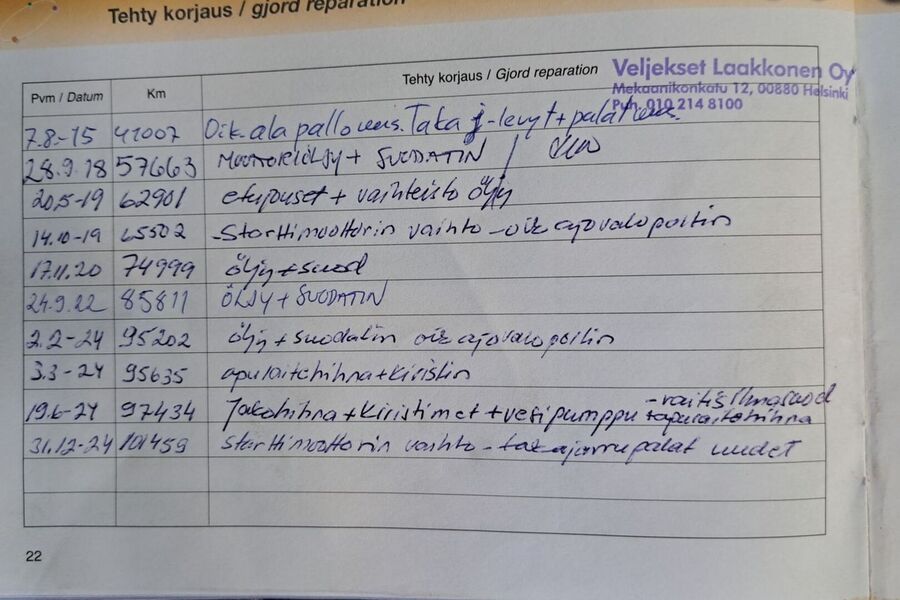 Tehty korjaus / gjord reparation
Pvm / Datum Km Tehty korjaus / Gjord reparation
Veljekset Laakkonen Oy
Mekaanikonkatu 12, 00880 Helsinki
Puh. 010 214 8100
7.8.-15 41007 Oik. ala pallo Taka j-levyt + palat
28.9.18 57663 MOOTTORIÖLJY + SUODATIN
20.5-19 62901 etujouset + vaihteisto öljy
14.10-19 65502 -starttimoottorin vaihto - oik ajovalopoltin
17.11.20 74999 öljy + suod
24.9.22 85811 ÖLJY + SUODATIN
2.2-24 95202 öljy + suodatin oik ajovalopoltin
3.3-24 95635 apulaitehihna + kiristin
-raitis ilmasuod
19.6-24 97434 Jakohihna + kiristimet + vesipumppu + apulaitehihna
31.12-24 101459 starttimoottorin vaihto - takajarrupalat uudet
22